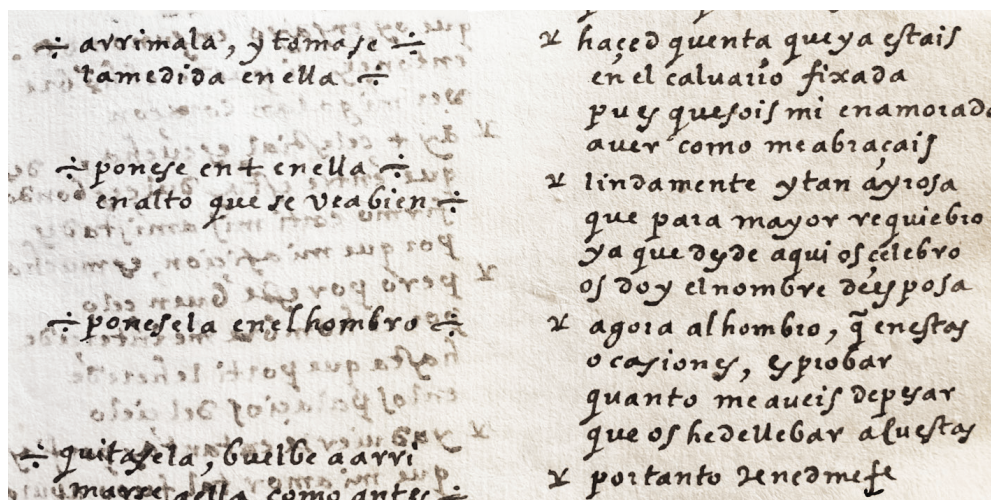 ÷ arrimala, y tomase ÷
la medida en ella ÷
÷ ponese en + en ella ÷
en alto que se vea bien ÷
÷ ponesela en el hombro ÷
÷ quitasela, buelbe a arri
marse a ella como antes ÷
haçed quenta que ya estais
en el caluario fixada
pues que sois mi enamorada
a uer como me abraçais
lindamente y tan ayrosa
que para mayor requiebro
ya que desde aqui os çelebro
os doy el nombre de esposa
agora al hombro, q̃ en estas
ocasiones, es probar
quanto me aueis de pesar
que os he de llebar a cuestas
por tanto tenedme